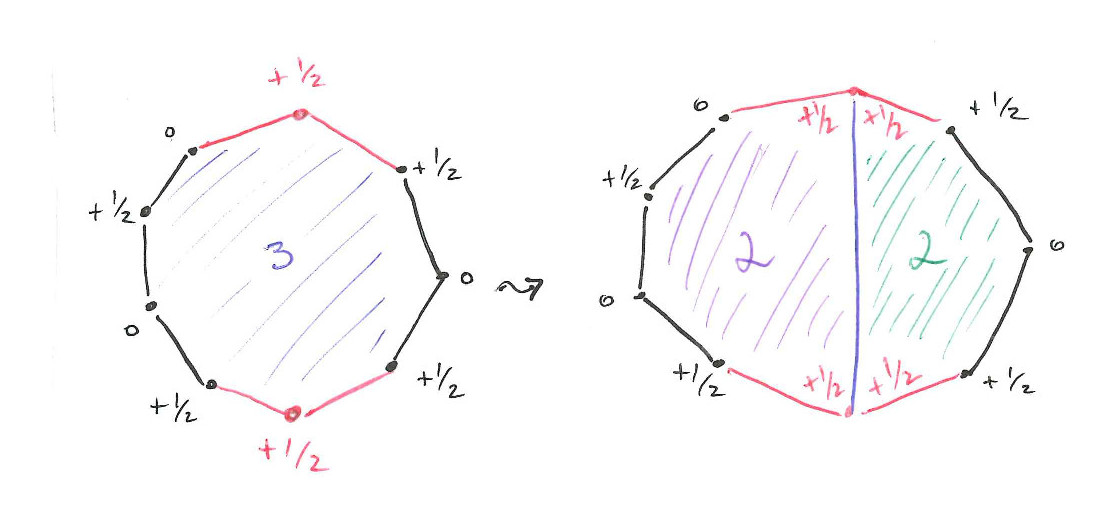 + 1/2
0
+ 1/2
+ 1/2
3
0
0
+ 1/2
+ 1/2
+ 1/2
0
+1/2
+1/2
+ 1/2
+ 1/2
2
2
0
0
+1/2
+1/2
+1/2
+ 1/2